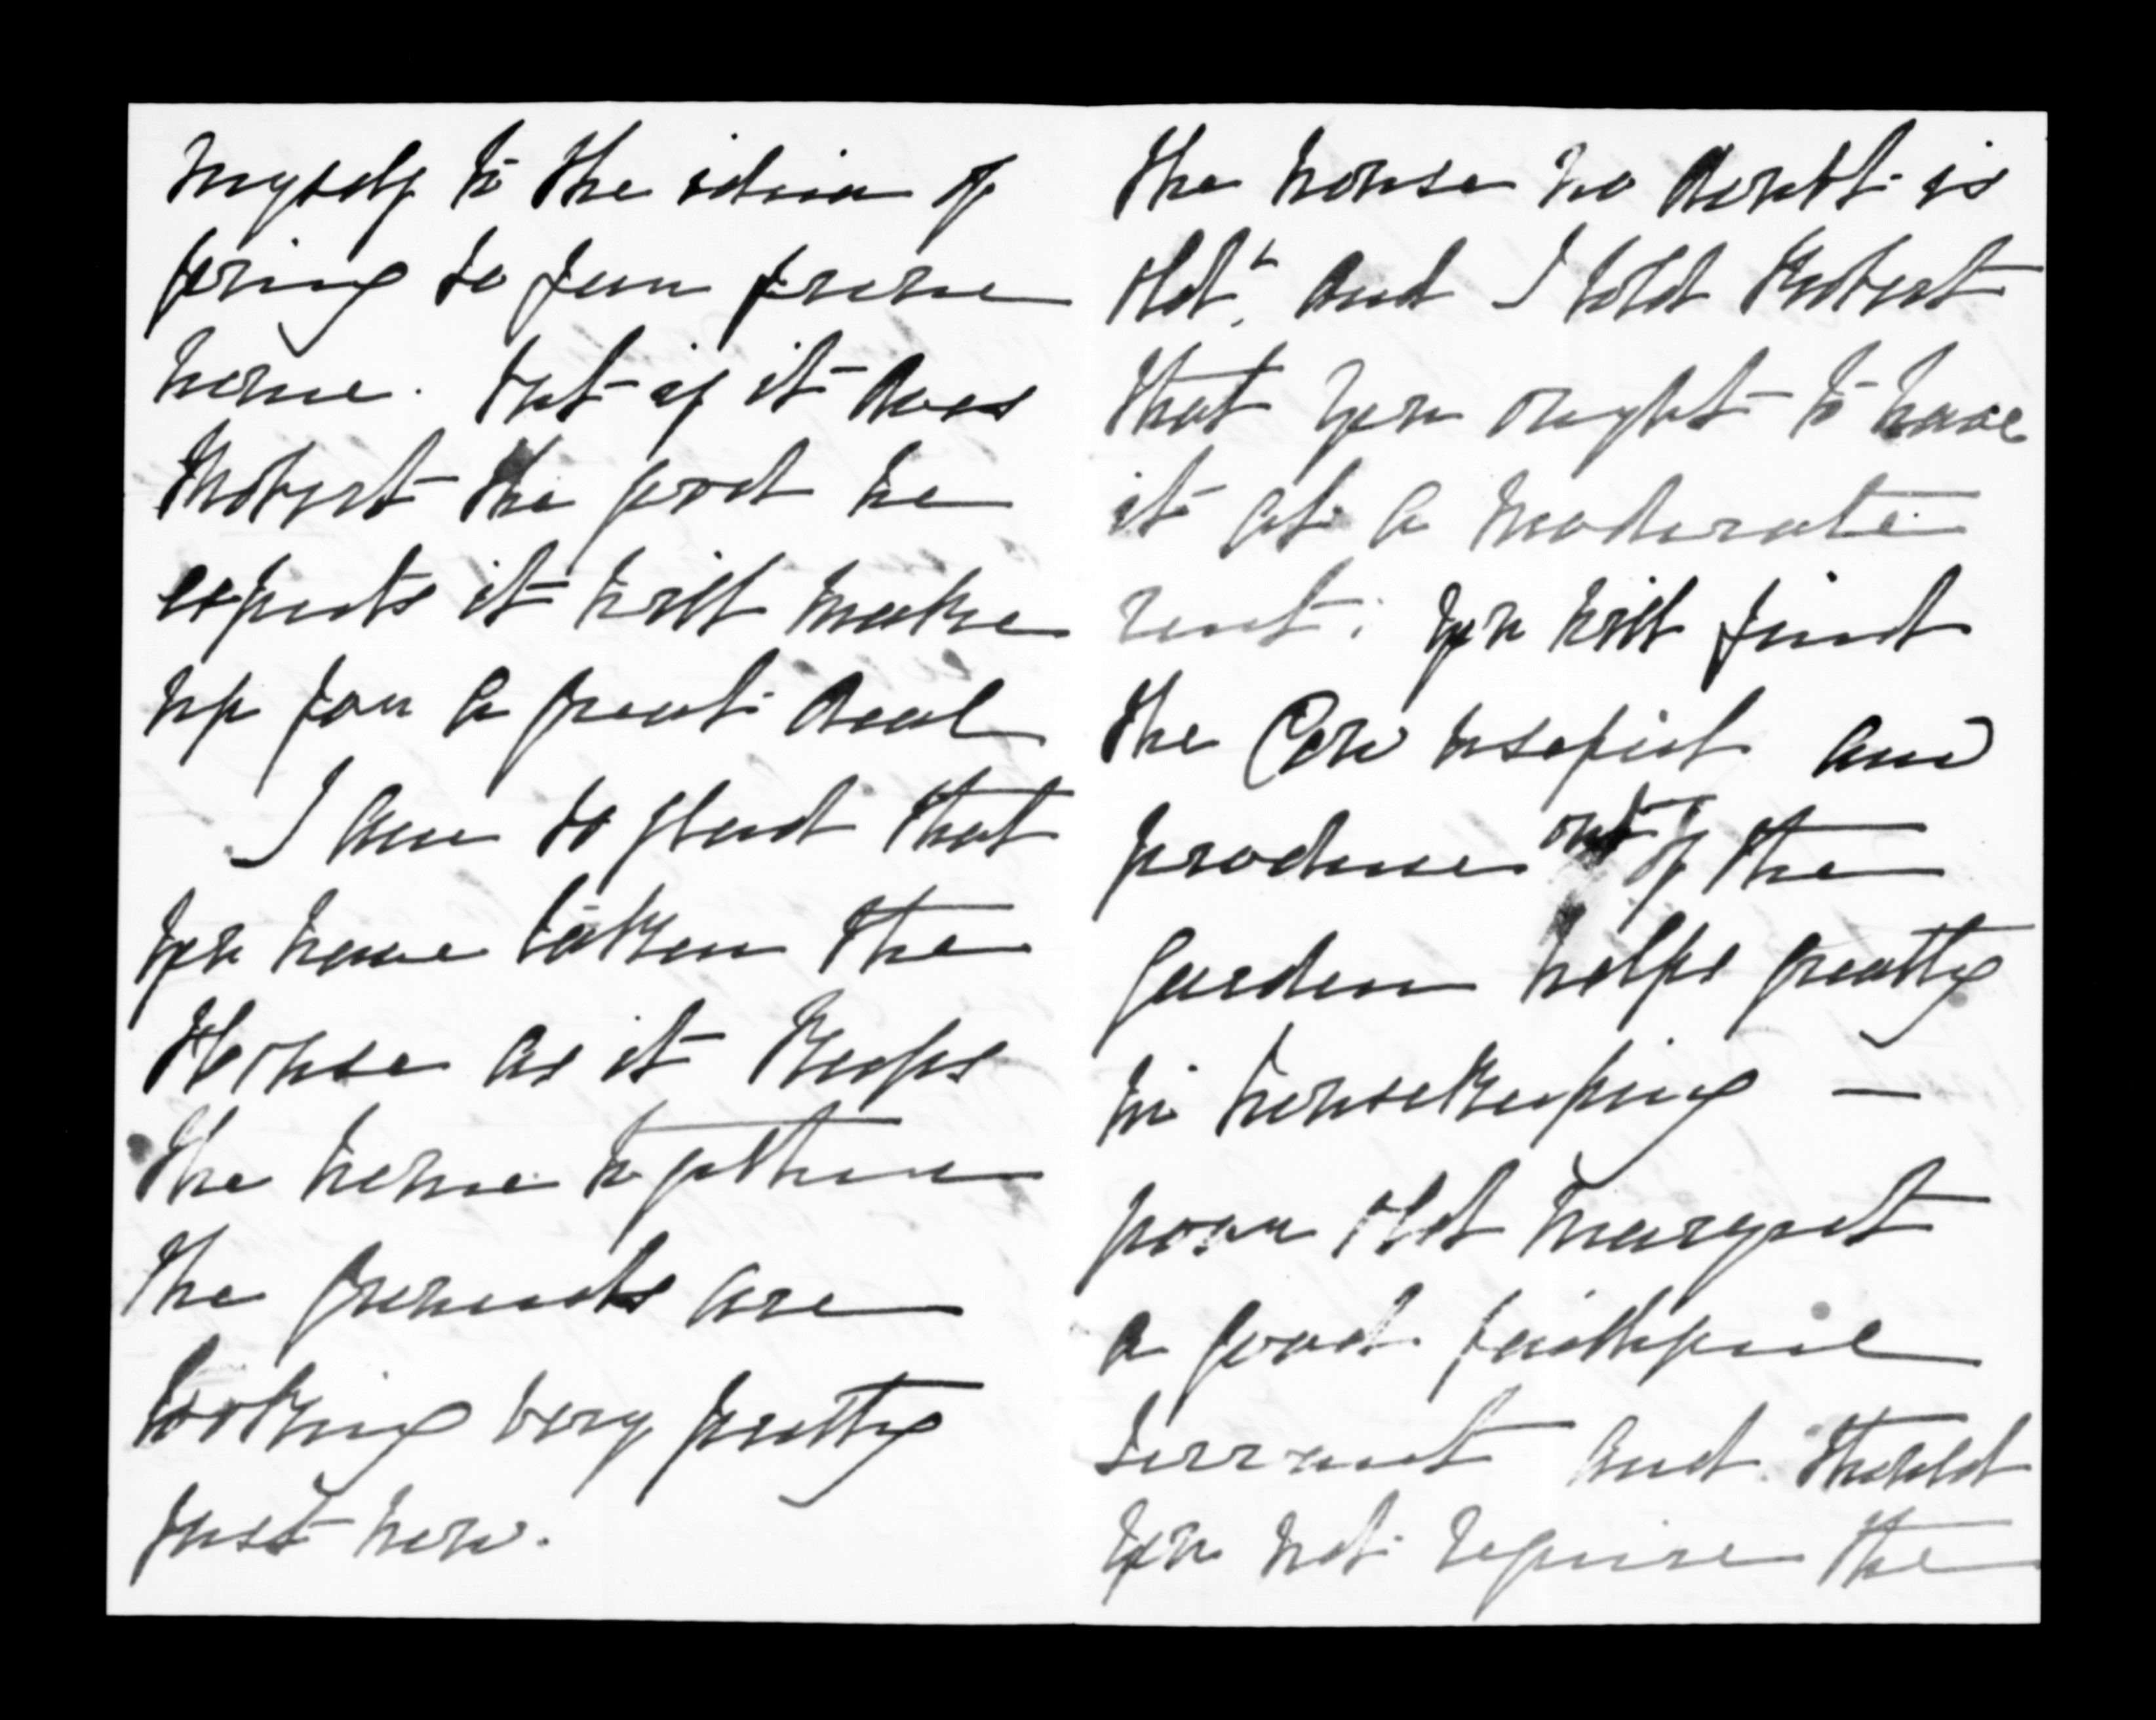 myself to the idiea of
going so farr from
home. but if it does
Robert the good he
expects it will make
up for a great deal
I am so glad that
you have taken the
House as it keeps
the home together
the grounds are
looking very pretty
just now.
the house no doubt is
old, and I told Robert
that you ought to have
it at a moderate
rent; you will find
the Cow usefull and
produce out of the
garden helps greatly
in housekeeping —
poor old Margret
a good faithful
servant and should
you not require the